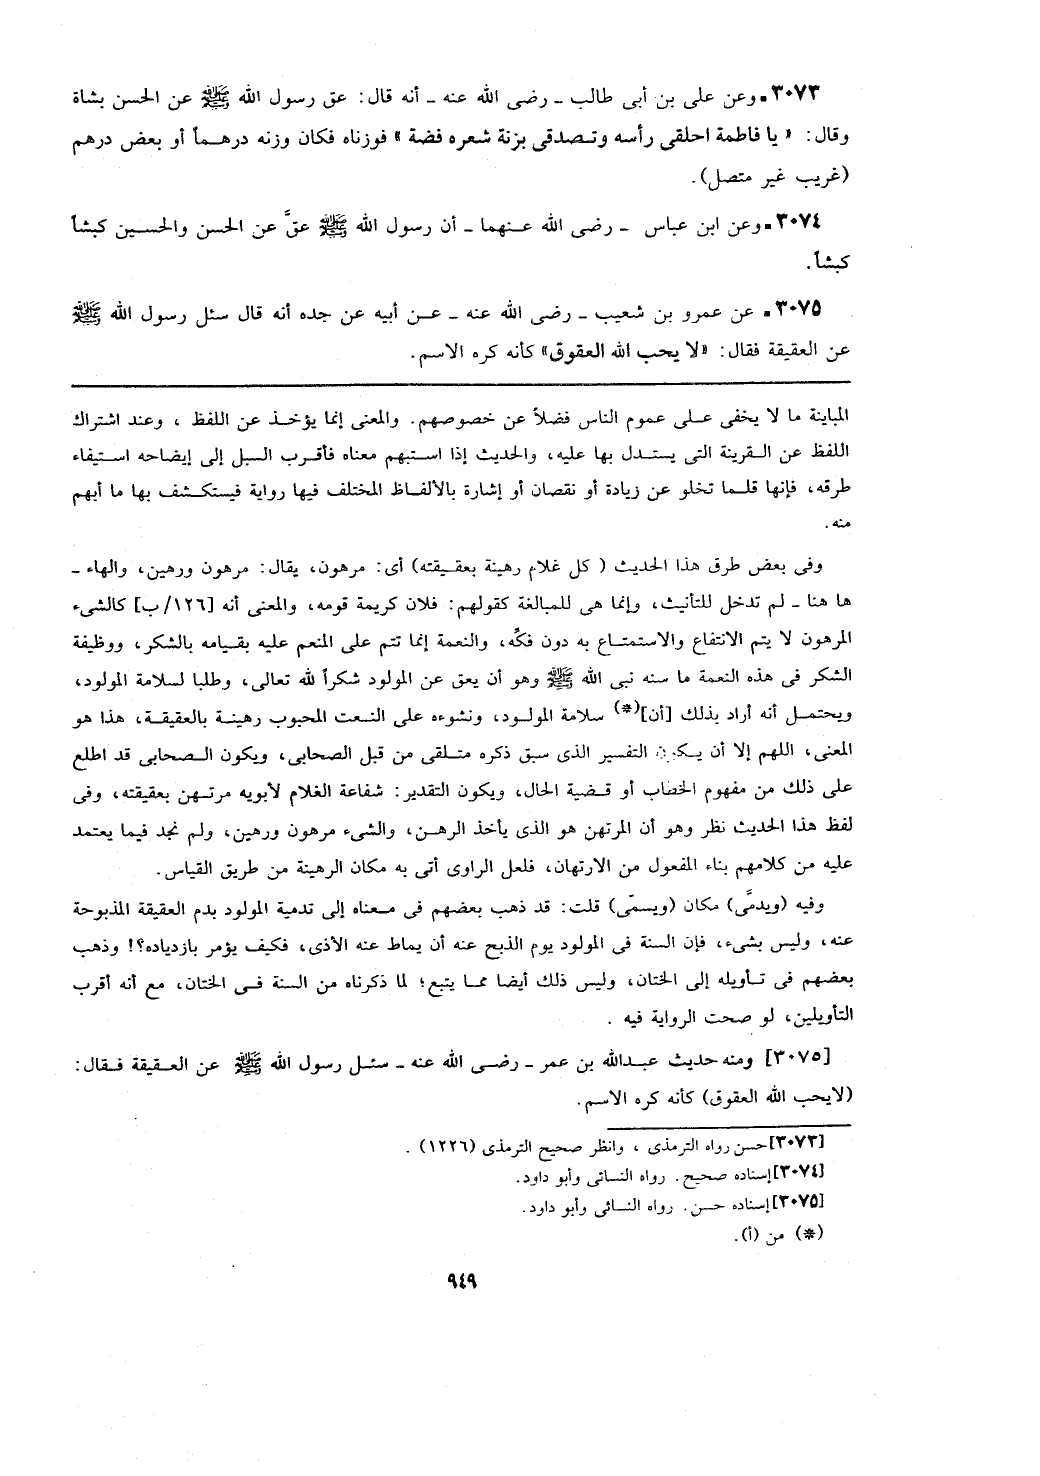 ٣٠٧٣ـ وعن على بن أبى طالب ـ رضى الله عنه ـ أنه قال: عق رسول الله ﷺ عن الحسن بشاة
وقال: «يا فاطمة احلقى رأسه وتصدقى بزنة شعره فضة» فوزناه فكان وزنه درهماً أو بعض درهم
(غريب غير متصل).
٣٠٧٤ـ وعن ابن عباس ـ رضى الله عنهما ـ أن رسول الله ﷺ عقَّ عن الحسن والحسين كبشاً
كبشاً.
٣٠٧٥ـ عن عمرو بن شعيب ـ رضى الله عنه ـ عن أبيه عن جده أنه قال سئل رسول الله ﷺ
عن العقيقة فقال: «لا يحب الله العقوق» كأنه كره الاسم.
المباينة ما لا يخفى على عموم الناس فضلاً عن خصوصهم. والمعنى إنما يؤخذ عن اللفظ ، وعند اشتراك
اللفظ عن القرينة التى يستدل بها عليه، والحديث إذا استبهم معناه فأقرب السبل إلى إيضاحه استيفاء
طرقه، فإنها قلما تخلو عن زيادة أو نقصان أو إشارة بالألفاظ المختلف فيها رواية فيستكشف بها ما أبهم
منه.
وفى بعض طرق هذا الحديث ( كل غلام رهينة بعقيقته) أى: مرهون، يقال: مرهون ورهين، والهاء ـ
ها هنا ـ لم تدخل للتأنيث، وإنما هى للمبالغة كقولهم: فلان كريمة قومه، والمعنى أنه [١٢٦/ ب] كالشىء
المرهون لا يتم الانتفاع والاستمتاع به دون فكِّه، والنعمة إنما تتم على المنعم عليه بقيامه بالشكر، ووظيفة
الشكر فى هذه النعمة ما سنه نبى الله ﷺ وهو أن يعق عن المولود شكراً لله تعالى، وطلبا لسلامة المولود،
ويحتمل أنه أراد بذلك [أن](*) سلامة المولود، ونشوءه على النعت المحبوب رهينة بالعقيقة، هذا هو
المعنى، اللهم إلا أن يكون التفسير الذى سبق ذكره متلقى من قبل الصحابى، ويكون الصحابى قد اطلع
على ذلك من مفهوم الخطاب أو قضية الحال، ويكون التقدير: شفاعة الغلام لأبويه مرتهن بعقيقته، وفى
لفظ هذا الحديث نظر وهو أن المرتهن هو الذى يأخذ الرهن، والشىء مرهون ورهين، ولم نجد فيما يعتمد
عليه من كلامهم بناء المفعول من الارتهان، فلعل الراوى أتى به مكان الرهينة من طريق القياس.
وفيه (ويدمَّى) مكان (ويسمّى) قلت: قد ذهب بعضهم فى معناه إلى تدمية المولود بدم العقيقة المذبوحة
عنه، وليس بشىء، فإن السنة فى المولود يوم الذبح عنه أن يماط عنه الأذى، فكيف يؤمر بازدياده؟! وذهب
بعضهم فى تأويله إلى الختان، وليس ذلك أيضا مما يتبع؛ لما ذكرناه من السنة فى الختان، مع أنه أقرب
التأويلين، لو صحت الرواية فيه .
[٣٠٧٥] ومنه حديث عبدالله بن عمر ـ رضى الله عنه ـ سئل رسول الله ﷺ عن العقيقة فقال:
(لايحب الله العقوق) كأنه كره الاسم.
[٣٠٧٣]حسن رواه الترمذى ، وانظر صحيح الترمذى (١٢٢٦) .
[٣٠٧٤]إسناده صحيح. رواه النسائى وأبو داود.
[٣٠٧٥]إسناده حسن. رواه النسائى وأبو داود.
(*) من (أ).
٩٤٩